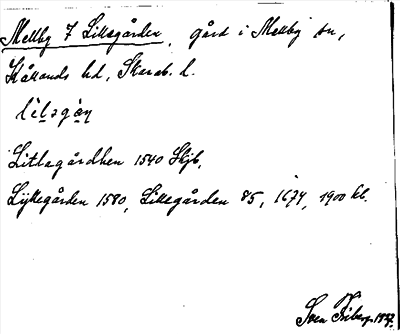 Mellby 7 Lillegården, gård i Mellby sn,
Kållands hd, Skarab. l.
lìləgàn̥
Litlagårdhen 1540 Skjb,
Lyllegården 1580, Lillegården 85, 1674, 1900 kb.
Sven Friberg 1937.